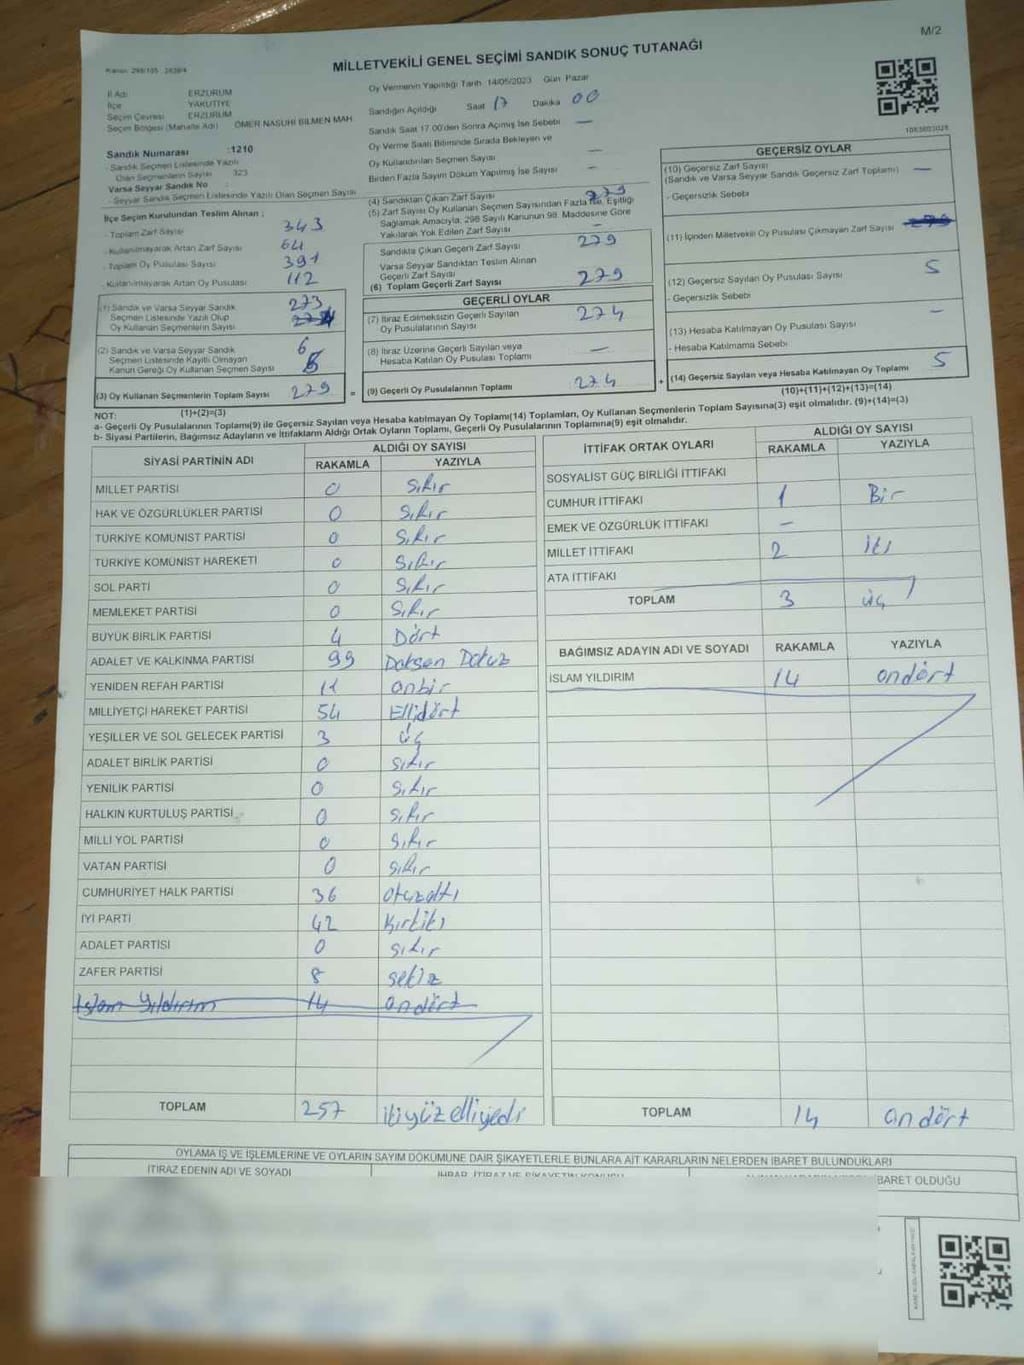 M/2
MİLLETVEKİLİ GENEL SEÇİMİ SANDIK SONUÇ TUTANAĞI
İl Adı ERZURUM
İlçe YAKUTİYE
Seçim Çevresi ERZURUM
Seçim Bölgesi (Mahalle Adı) ÖMER NASUHİ BİLMEN MAH
Sandık Numarası :1210
- Sandık Seçmen Listesinde Yazılı
Olan Seçmenlerin Sayısı 323
Varsa Seyyar Sandık No :
- Seyyar Sandık Seçmen Listesinde Yazılı Olan Seçmen Sayısı
Oy Vermenin Yapıldığı Tarih 14/05/2023 Gün Pazar
Sandığın Açıldığı Saat 17 Dakika 00
Sandık Saat 17.00'den Sonra Açılmış İse Sebebi —
Oy Verme Saati Bitiminde Sırada Bekleyen ve
Oy Kullandırılan Seçmen Sayısı —
Birden Fazla Sayım Döküm Yapılmış İse Sayısı —
İlçe Seçim Kurulundan Teslim Alınan ;
- Toplam Zarf Sayısı 343
- Kullanılmayarak Artan Zarf Sayısı 64
- Toplam Oy Pusulası Sayısı 391
- Kullanılmayarak Artan Oy Pusulası 112
(1) Sandık ve Varsa Seyyar Sandık 273
Seçmen Listesinde Yazılı Olup
Oy Kullanan Seçmenlerin Sayısı
(2) Sandık ve Varsa Seyyar Sandık 6
Seçmen Listesinde Kayıtlı Olmayan
Kanun Gereği Oy Kullanan Seçmen Sayısı
(3) Oy Kullanan Seçmenlerin Toplam Sayısı 279
(1)+(2)=(3)
(4) Sandıktan Çıkan Zarf Sayısı 279
(5) Zarf Sayısı Oy Kullanan Seçmen Sayısından Fazla İse, Eşitliği
Sağlamak Amacıyla, 298 Sayılı Kanunun 98. Maddesine Göre
Yakılarak Yok Edilen Zarf Sayısı —
Sandıkta Çıkan Geçerli Zarf Sayısı 279
Varsa Seyyar Sandıktan Teslim Alınan
Geçerli Zarf Sayısı
(6) Toplam Geçerli Zarf Sayısı 279
GEÇERLİ OYLAR
(7) İtiraz Edilmeksizin Geçerli Sayılan
Oy Pusulalarının Sayısı 274
(8) İtiraz Üzerine Geçerli Sayılan veya
Hesaba Katılan Oy Pusulası Toplamı —
= (9) Geçerli Oy Pusulalarının Toplamı 274
1063603028
GEÇERSİZ OYLAR
(10) Geçersiz Zarf Sayısı
(Sandık ve Varsa Seyyar Sandık Geçersiz Zarf Toplamı) —
- Geçersizlik Sebebi
(11) İçinden Milletvekili Oy Pusulası Çıkmayan Zarf Sayısı
(12) Geçersiz Sayılan Oy Pusulası Sayısı 5
- Geçersizlik Sebebi
(13) Hesaba Katılmayan Oy Pusulası Sayısı —
- Hesaba Katılmama Sebebi
+ (14) Geçersiz Sayılan veya Hesaba Katılmayan Oy Toplamı 5
(10)+(11)+(12)+(13)=(14)
NOT:
a- Geçerli Oy Pusulalarının Toplamı(9) ile Geçersiz Sayılan veya Hesaba katılmayan Oy Toplamı(14) Toplamları, Oy Kullanan Seçmenlerin Toplam Sayısına(3) eşit olmalıdır. (9)+(14)=(3)
b- Siyasi Partilerin, Bağımsız Adayların ve İttifakların Aldığı Ortak Oyların Toplamı, Geçerli Oy Pusulalarının Toplamına(9) eşit olmalıdır.
SİYASİ PARTİNİN ADI ALDIĞI OY SAYISI
RAKAMLA YAZIYLA
MİLLET PARTİSİ 0 Sıfır
HAK VE ÖZGÜRLÜKLER PARTİSİ 0 Sıfır
TÜRKİYE KOMÜNİST PARTİSİ 0 Sıfır
TÜRKİYE KOMÜNİST HAREKETİ 0 Sıfır
SOL PARTİ 0 Sıfır
MEMLEKET PARTİSİ 0 Sıfır
BÜYÜK BİRLİK PARTİSİ 4 Dört
ADALET VE KALKINMA PARTİSİ 99 Doksan Dokuz
YENİDEN REFAH PARTİSİ 11 onbir
MİLLİYETÇİ HAREKET PARTİSİ 54 Ellidört
YEŞİLLER VE SOL GELECEK PARTİSİ 3 üç
ADALET BİRLİK PARTİSİ 0 sıfır
YENİLİK PARTİSİ 0 sıfır
HALKIN KURTULUŞ PARTİSİ 0 sıfır
MİLLİ YOL PARTİSİ 0 sıfır
VATAN PARTİSİ 0 sıfır
CUMHURİYET HALK PARTİSİ 36 otuzaltı
İYİ PARTİ 42 kırkiki
ADALET PARTİSİ 0 sıfır
ZAFER PARTİSİ 8 sekiz
İslam Yıldırım 14 ondört
TOPLAM 257 ikiyüzelliyedi
İTTİFAK ORTAK OYLARI ALDIĞI OY SAYISI
RAKAMLA YAZIYLA
SOSYALİST GÜÇ BİRLİĞİ İTTİFAKI
CUMHUR İTTİFAKI 1 Bir
EMEK VE ÖZGÜRLÜK İTTİFAKI —
MİLLET İTTİFAKI 2 iki
ATA İTTİFAKI
TOPLAM 3 üç
BAĞIMSIZ ADAYIN ADI VE SOYADI RAKAMLA YAZIYLA
İSLAM YILDIRIM 14 ondört
TOPLAM 14 ondört
OYLAMA İŞ VE İŞLEMLERİNE VE OYLARIN SAYIM DÖKÜMÜNE DAİR ŞİKAYETLERLE BUNLARA AİT KARARLARIN NELERDEN İBARET BULUNDUKLARI
İTİRAZ EDENİN ADI VE SOYADI
BARET OLDUĞU